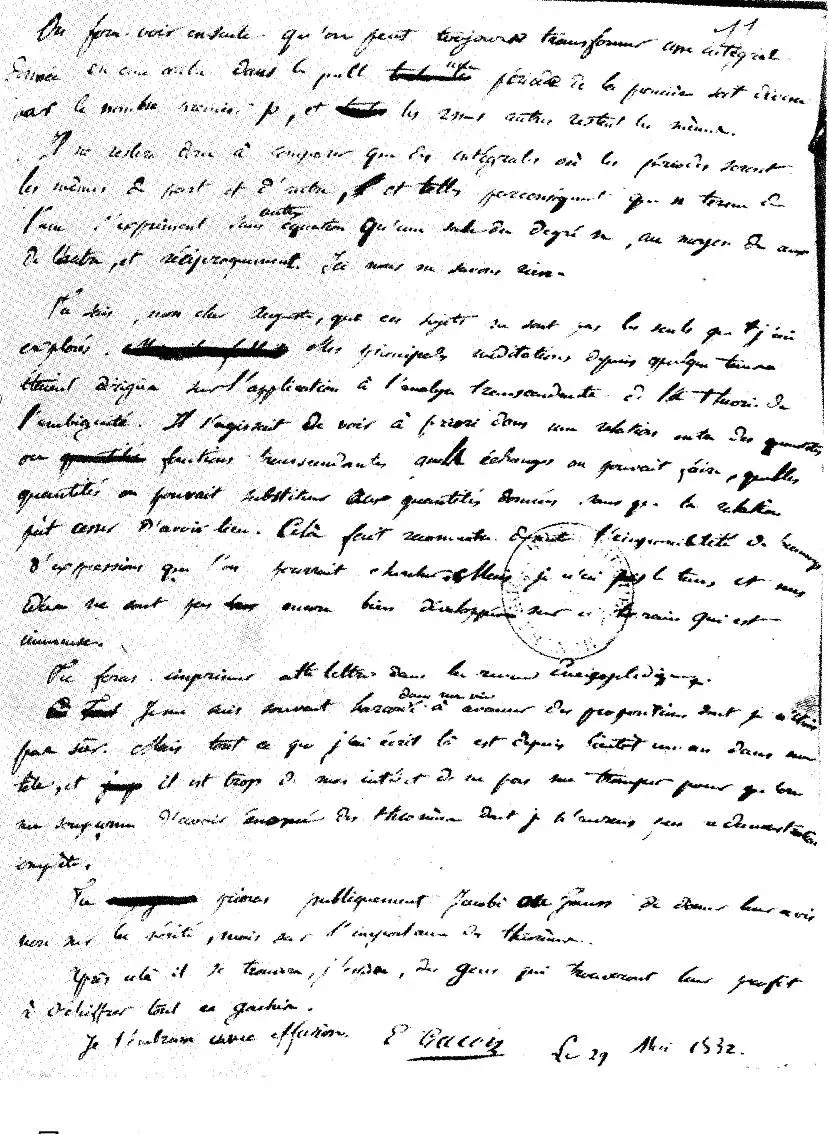 11
On fera voir ensuite qu'on peut toujours transformer une intégrale
donnée en une autre dans laquelle une période de la première soit divisée
par le nombre premier p, et les 2n-1 autres restent les mêmes.
Il ne restera donc à comparer que des intégrales où les périodes seront
les mêmes de part et d'autre, et telles parconséquent que n termes de
l'une s'expriment sans autre équation qu'une seule du degré n, au moyen de ceux
de l'autre, et réciproquement. Ici nous ne savons rien.
Tu sais, mon cher Auguste, que ces sujets ne sont pas les seuls que j'aie
explorés. Mes principales méditations depuis quelque temps
étaient dirigées sur l'application à l'analyse transcendante de la théorie de
l'ambiguité. Il s'agissait de voir à priori dans une relation entre des quantités
ou fonctions transcendantes quels échanges on pouvait faire, quelles
quantités on pouvait substituer aux quantités données sans que la relation
pût cesser d'avoir lieu. Cela fait reconnaitre l'impossibilité de beaucoup
d'expressions que l'on pourrait chercher. Mais je n'ai pas le temps et mes
idées ne sont pas encore bien développées sur ce terrain qui est
immense.
Tu feras imprimer cette lettre dans la revue Encyclopédique.
Je me suis souvent hazardé dans ma vie à avancer des propositions dont je n'étais
pas sûr. Mais tout ce que j'ai écrit là est depuis bientôt un an dans ma
tête, et il est trop de mon intérêt de ne pas me tromper pour qu'on
me soupçonne d'avoir énoncé des théorèmes dont je n'aurais pas la démonstration
complète.
Tu prieras publiquement Jacobi ou Gauss de donner leur avis
non sur la vérité, mais sur l'importance des théorèmes.
Après cela il se trouvera, j'espère, des gens qui trouveront leur profit
à déchiffrer tout ce gachis.
Je t'embrasse avec effusion. E Galois Le 29 Mai 1832.